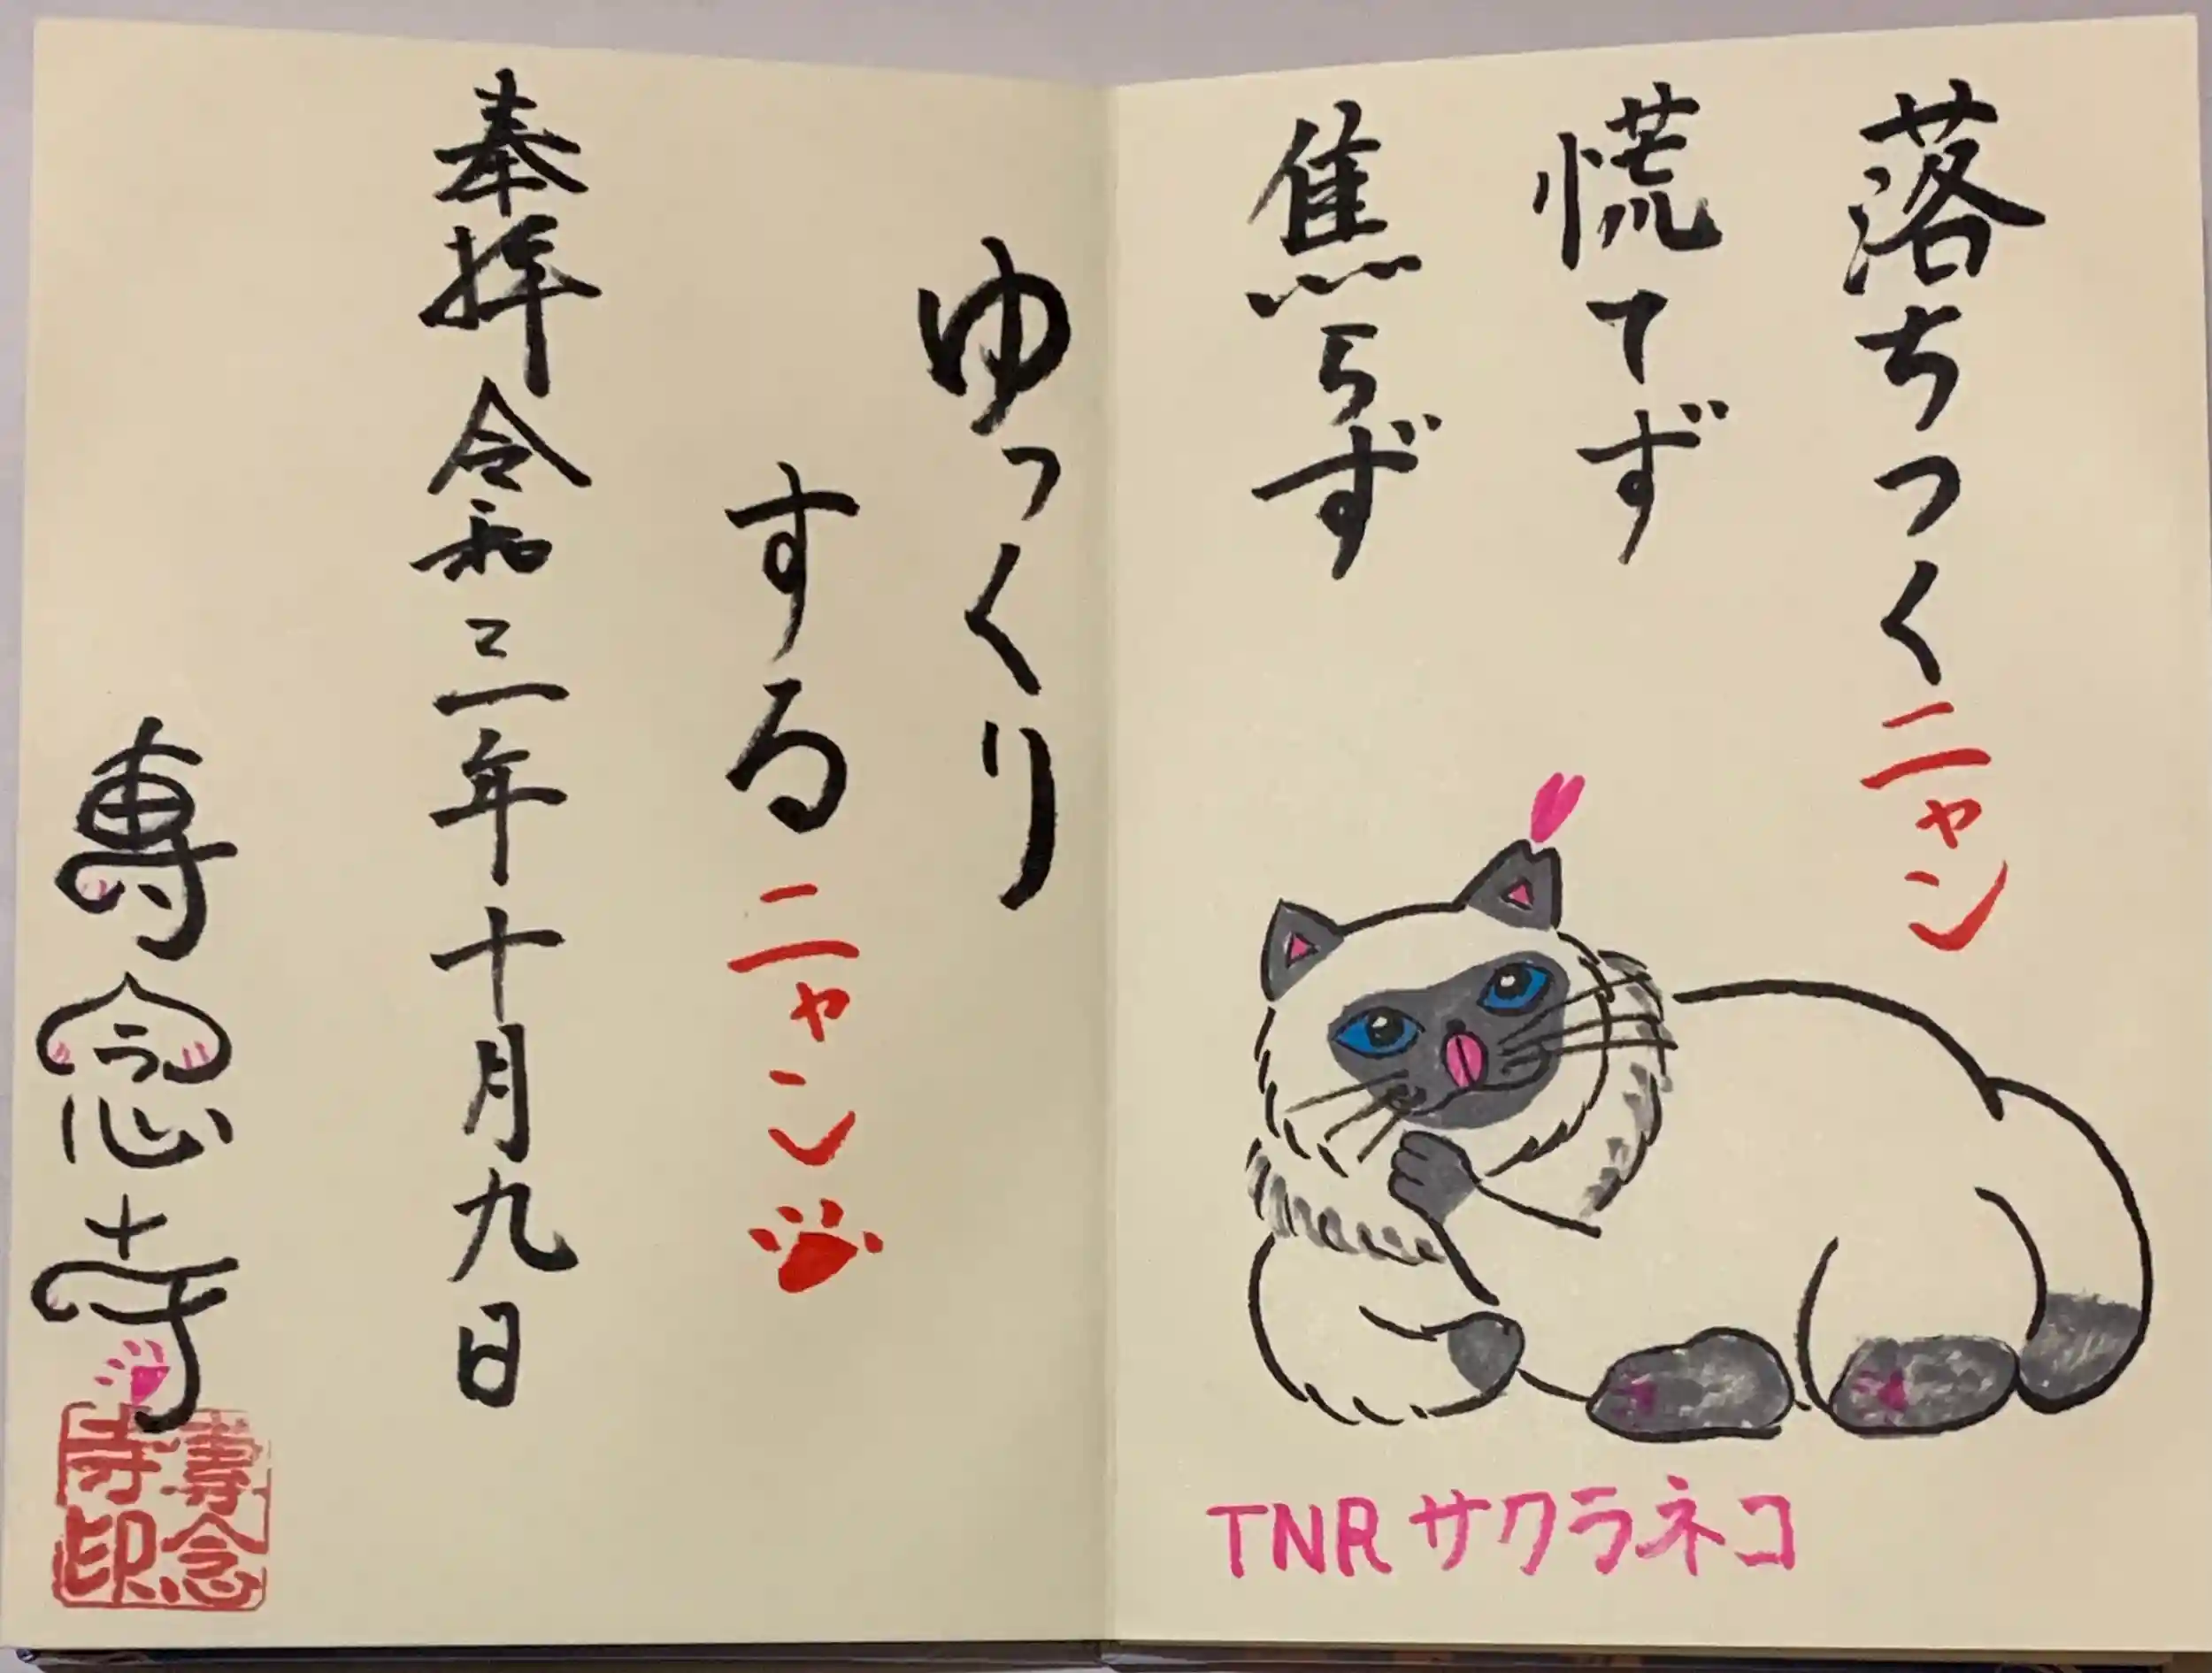 落ちつくニャン
慌てず
焦らず
ゆっくり
するニャン
奉拝 令和三年十月九日
専念寺
専念
寺印
TNRサクラネコ